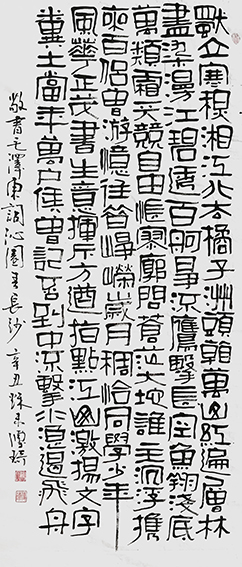 獨立寒穐湘江北去橘子洲頭看萬山紅遍層林
盡染漫江碧透百舸爭流鷹擊長空魚翔淺底
萬類霜天競自由悵寥廓問蒼茫大地誰主沉浮攜
來百侶曾游憶往昔崢嶸歲月稠恰同學少年
風華正茂書生意揮斥方遒指點江山激揚文字
糞土當年萬戶侯曾記否到中流擊水浪遏飛舟
敬書毛澤東詞沁園春長沙 辛丑